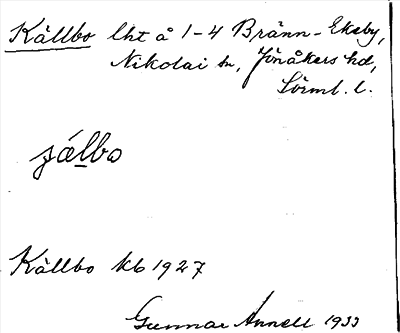 Källbo lht å 1-4 Bränn-Ekeby,
Nikolai sn, Jönåkers hd,
Sörml. l.
śálbo
Källbo kb 1927
Gunnar Annell 1933